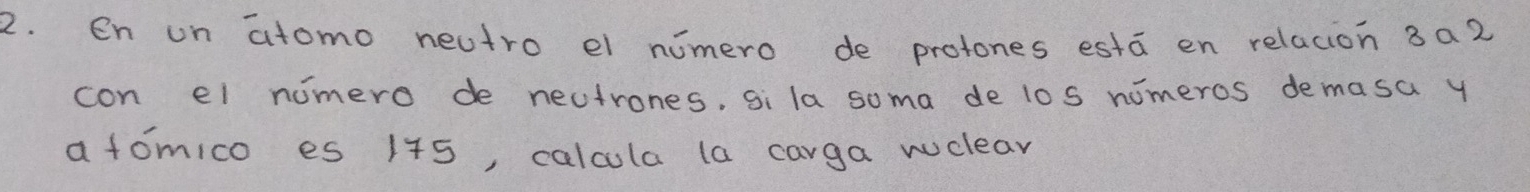 2. En un átomo neutro el número de protones está en relación 3 a 2
con el número de neutrones. Si la suma de los números de masa y
atómico es 175, calcula la carga nuclear